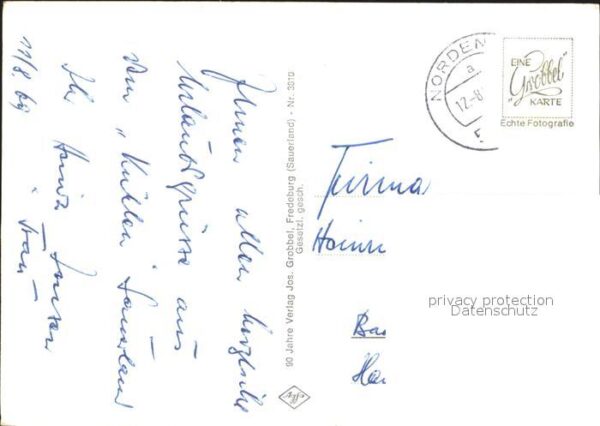 Ihnen allen herzliche
Urlaubsgrüsse aus
dem „Kühlen" Sauerland
Ihr Heinz
u. Frau
11/8. 69
90 Jahre Verlag Jos. Grobbel, Fredeburg (Sauerland) - Nr. 3010
Gesetzl. gesch.
Agfa
NORDEN
a
12.-8.
EINE
„Grobbel"
KARTE
Echte Fotografie
Firma
Heinr
privacy protection
Datenschutz
Bad
Han